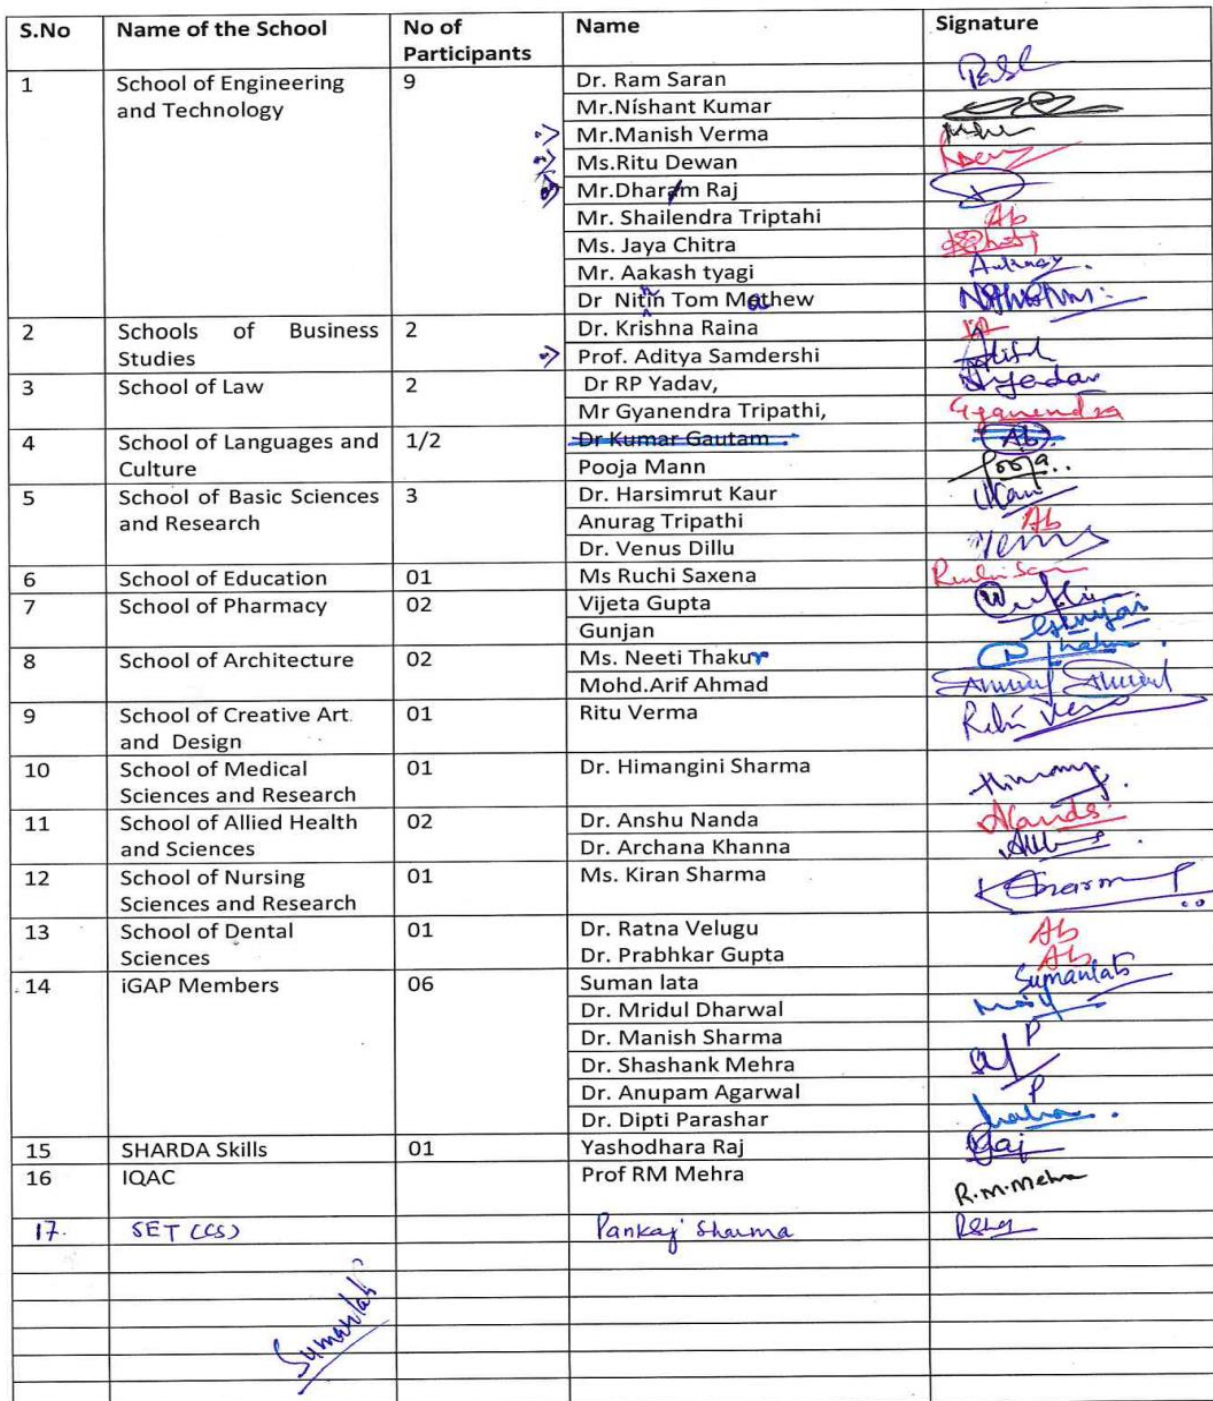 S.No Name of the School No of Participants Name Signature
1 School of Engineering and Technology 9 Dr. Ram Saran
Mr.Nishant Kumar
Mr.Manish Verma
Ms.Ritu Dewan
Mr.Dharam Raj
Mr. Shailendra Triptahi Ab
Ms. Jaya Chitra
Mr. Aakash tyagi
Dr Nitin Tom Mathew
2 Schools of Business Studies 2 Dr. Krishna Raina
Prof. Aditya Samdershi
3 School of Law 2 Dr RP Yadav,
Mr Gyanendra Tripathi, Gyanendra
4 School of Languages and Culture 1/2 Dr Kumar Gautam Ab
Pooja Mann Pooja..
5 School of Basic Sciences and Research 3 Dr. Harsimrut Kaur
Anurag Tripathi Ab
Dr. Venus Dillu Venus
6 School of Education 01 Ms Ruchi Saxena
7 School of Pharmacy 02 Vijeta Gupta
Gunjan Gunjan
8 School of Architecture 02 Ms. Neeti Thakur
Mohd.Arif Ahmad
9 School of Creative Art and Design 01 Ritu Verma
10 School of Medical Sciences and Research 01 Dr. Himangini Sharma
11 School of Allied Health and Sciences 02 Dr. Anshu Nanda
Dr. Archana Khanna
12 School of Nursing Sciences and Research 01 Ms. Kiran Sharma
13 School of Dental Sciences 01 Dr. Ratna Velugu Ab
Dr. Prabhkar Gupta Ab
14 iGAP Members 06 Suman lata Sumanlata
Dr. Mridul Dharwal
Dr. Manish Sharma P
Dr. Shashank Mehra
Dr. Anupam Agarwal P
Dr. Dipti Parashar
15 SHARDA Skills 01 Yashodhara Raj Raj
16 IQAC Prof RM Mehra R.M.Mehra
17. SET (CS) Pankaj Sharma
Sumanlata